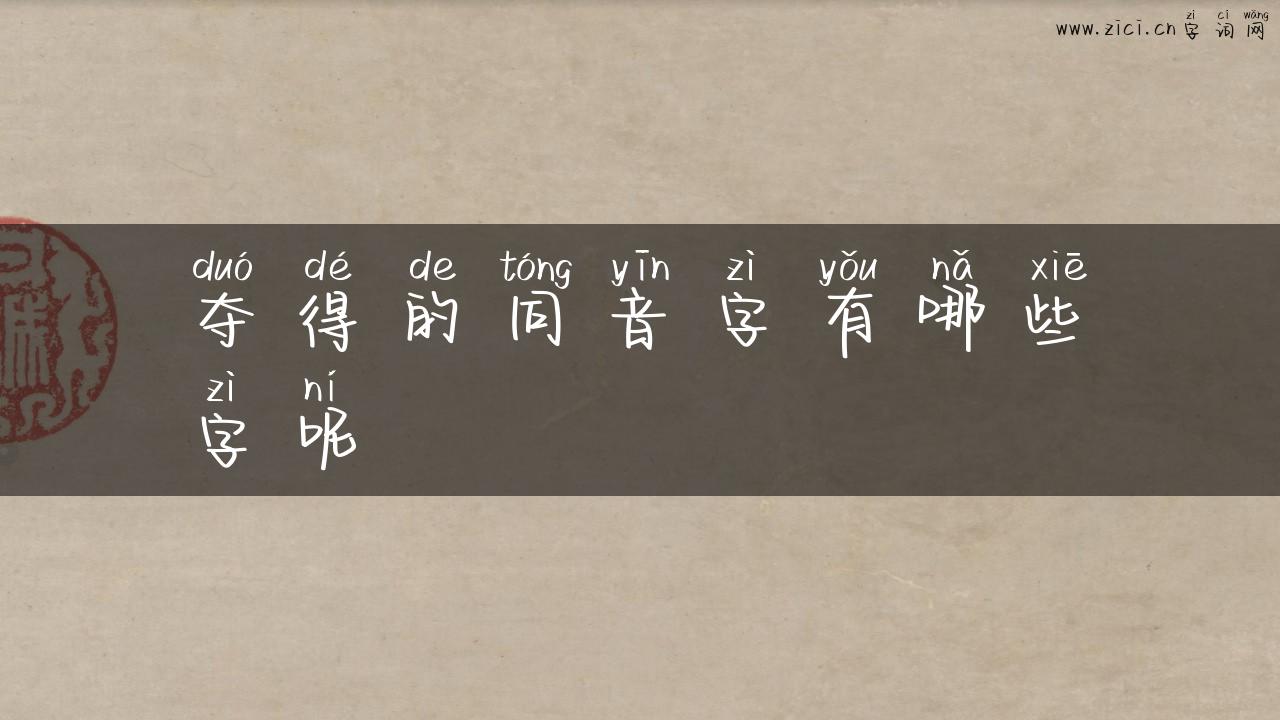 zì cí wǎng
www.zici.cn 字词网
duó dé de tóng yīn zì yǒu nǎ xiē
夺得的同音字有哪些
zì ní
字呢